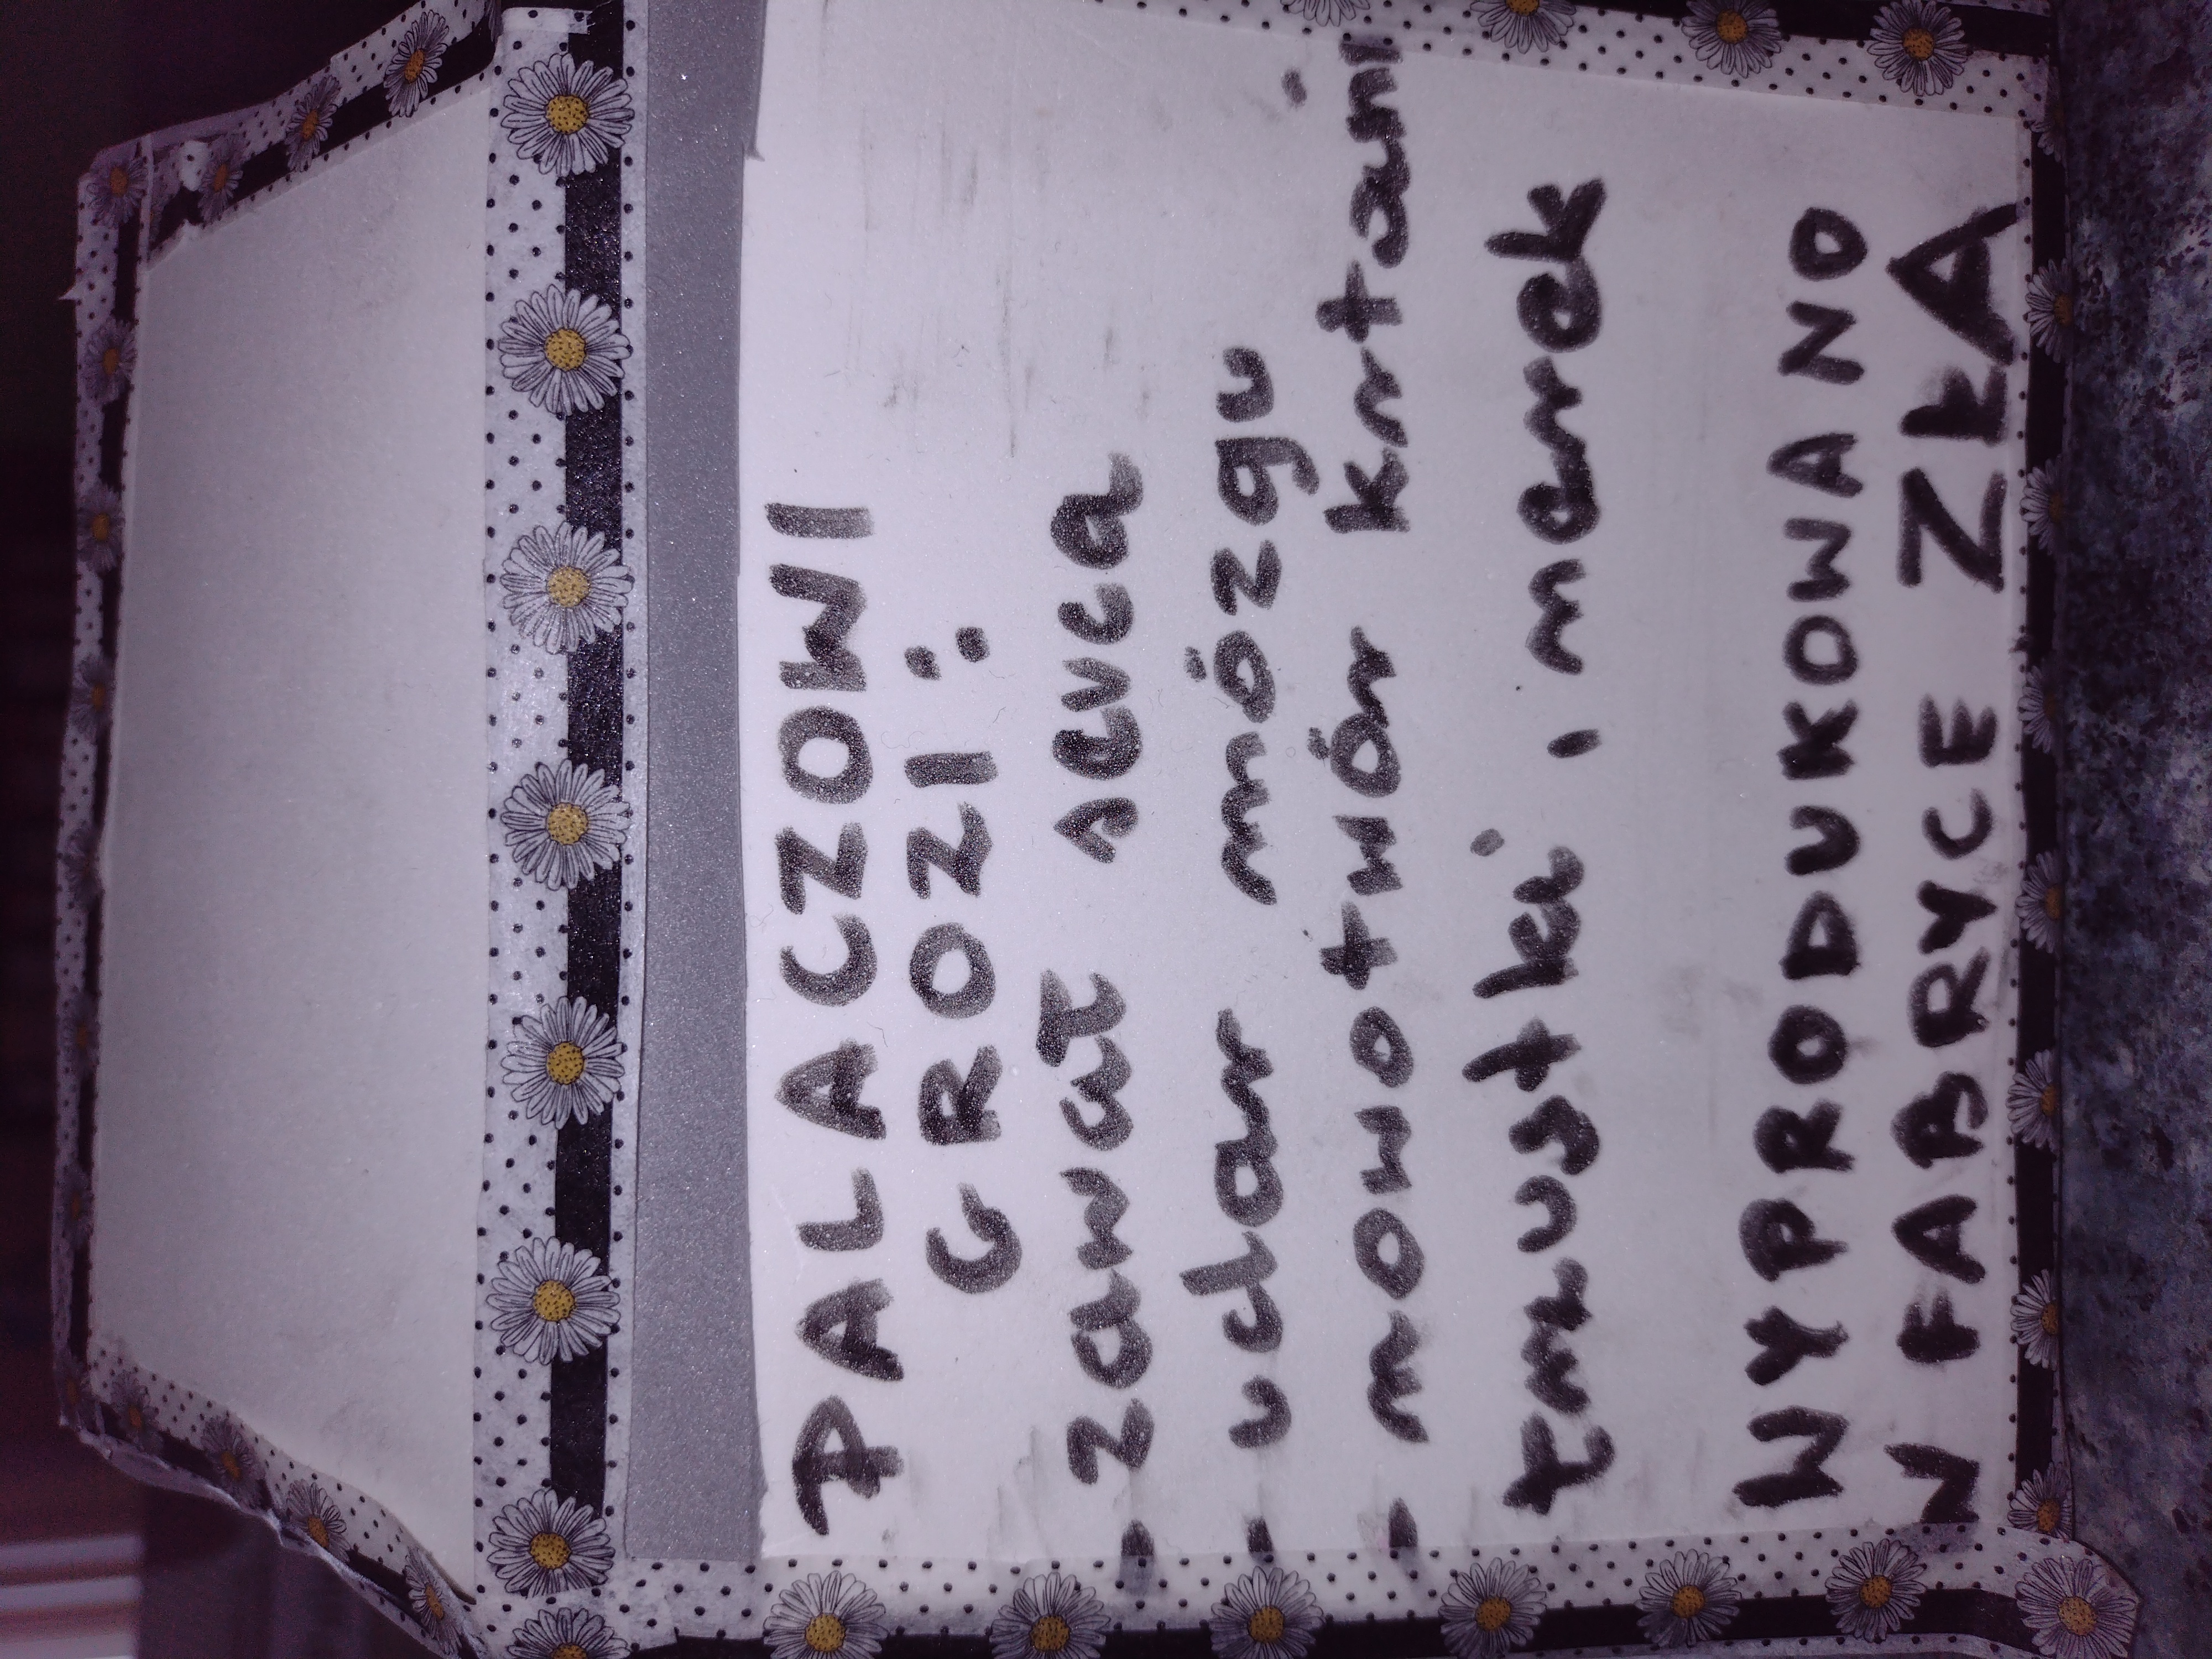 PALACZOWI
GROZI:
- zawał serca
- udar mózgu
- nowotwór krtani
trzustki, nerek
WYPRODUKOWANO
W FABRYCE ZŁA